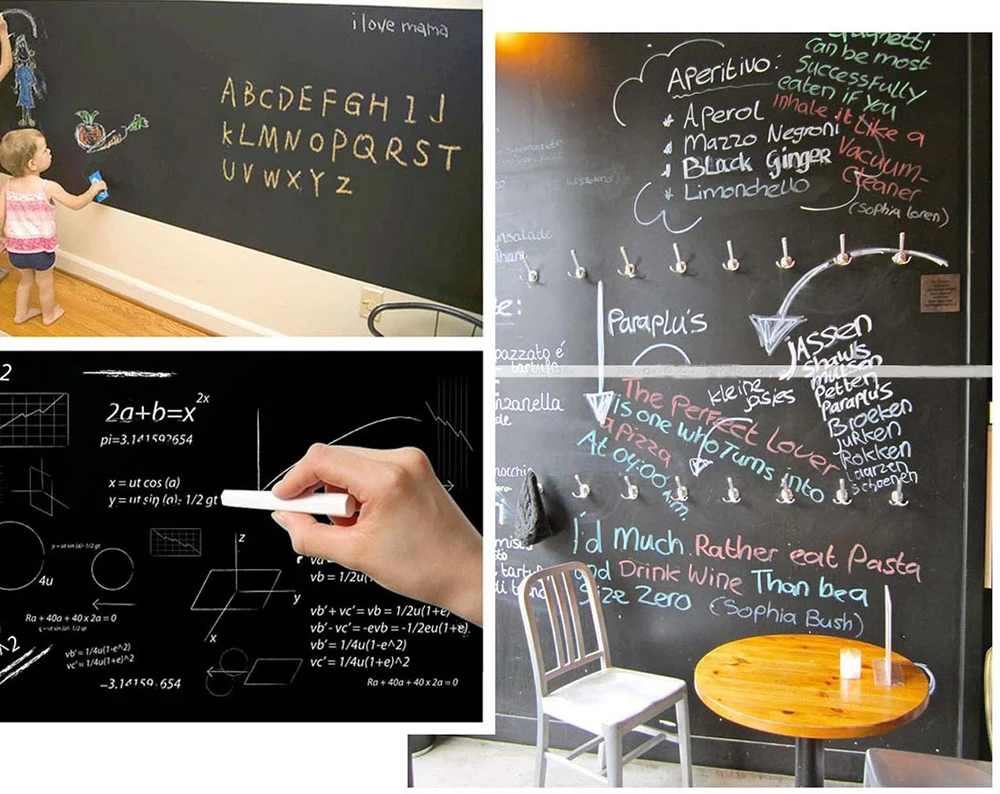 i love mama
ABCDEFGHIJ
KLMNOPQRST
UVWXYZ
2
2a+b=x^2x
pi=3.141592654
x = ut cos (a)
y = ut sin (a)- 1/2 gt
y = ut sin (a)- 1/2 gt
4u
z
y
x
Ra + 40a + 40 x 2a = 0
vb' = 1/4u(1-e^2)
vc' = 1/4u(1+e)^2
-3.14159 654
vb = 1/2u(
vb' + vc' = vb = 1/2u(1+e)
vb' - vc' = -evb = -1/2eu(1+e)
vb' = 1/4u(1-e^2)
vc' = 1/4u(1+e)^2
Ra + 40a + 40 x 2a = 0
^2
Spaghetti
can be most
Successfully
eaten if you
inhale it Like a
Vacuum-
Cleaner
(Sophia Loren)
Aperitivo:
* Aperol
* Mazzo Negroni
* Black Ginger
* Limonchello
Paraplu's
JASSEN
Shawls
mutsen
Petten
Paraplus
Broeken
Jurken
Rokken
Laarzen
Schoenen
kleine
jasjes
The Perfect Lover
is one who Turns into
a pizza
At 04:00 a.m.
I'd Much Rather eat Pasta
and Drink Wine Than be a
Size Zero (Sophia Bush)